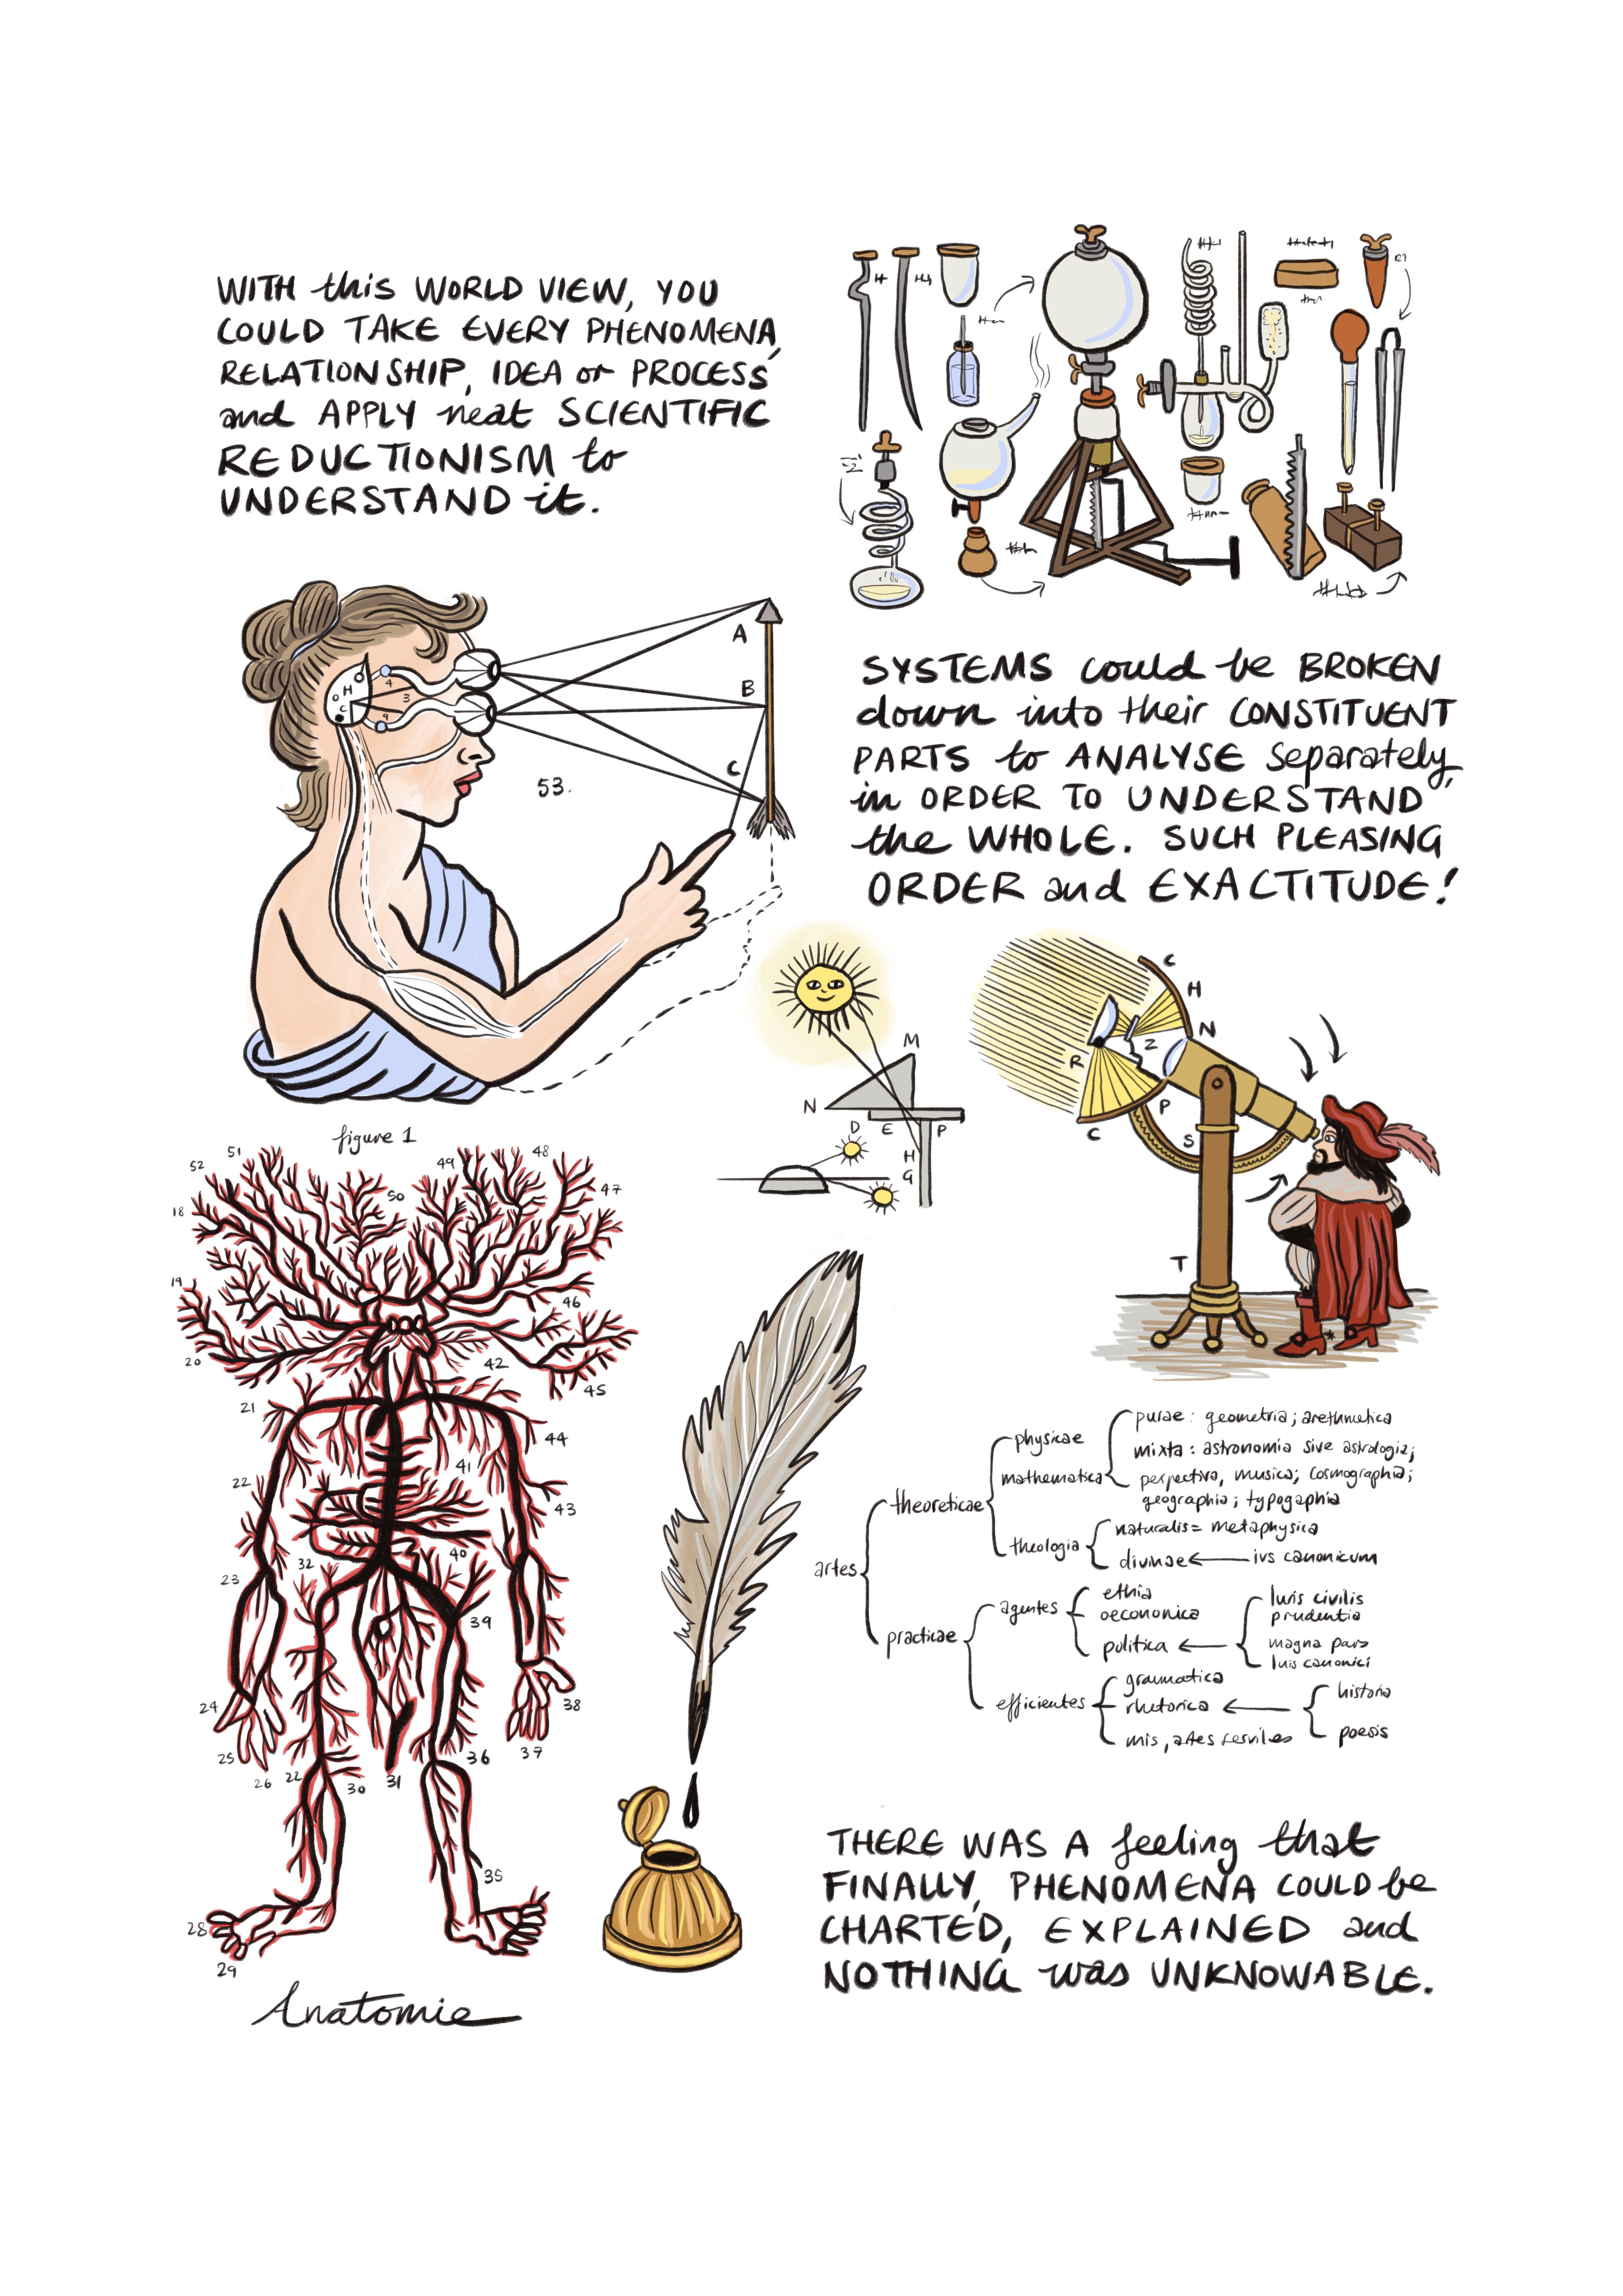 WITH this WORLD VIEW, YOU
COULD TAKE EVERY PHENOMENA,
RELATIONSHIP, IDEA or PROCESS
and APPLY neat SCIENTIFIC
REDUCTIONISM to
UNDERSTAND it.
SYSTEMS could be BROKEN
down into their CONSTITUENT
PARTS to ANALYSE separately,
in ORDER TO UNDERSTAND
the WHOLE. SUCH PLEASING
ORDER and EXACTITUDE!
A
B
C
H
C
4
3
9
53.
M
N
D E P
H
G
C
H
N
Z
R
P
C
S
T
figure 1
52
51
50
49
48
47
18
19
46
20
42
45
21
44
41
22
43
40
32
23
39
24
38
25
26
22
30
31
36
37
35
28
29
Anatomie
artes
theoreticae
physicae
mathematica
purae: geometria; arethmetica
mixta: astronomia sive astrologia;
perspectiva, musica; cosmographia;
geographia; typogaphia
theologia
naturalis = metaphysica
divinae ← ivs canonicum
practicae
agentes
ethia
oecononica
politica ←
luris civilis
prudentia
magna pars
luis canonici
efficientes
grammatica
rhetorica ←
historia
poesis
mis, artes serviles
THERE WAS A feeling that
FINALLY, PHENOMENA COULD be
CHARTED, EXPLAINED and
NOTHING was UNKNOWABLE.